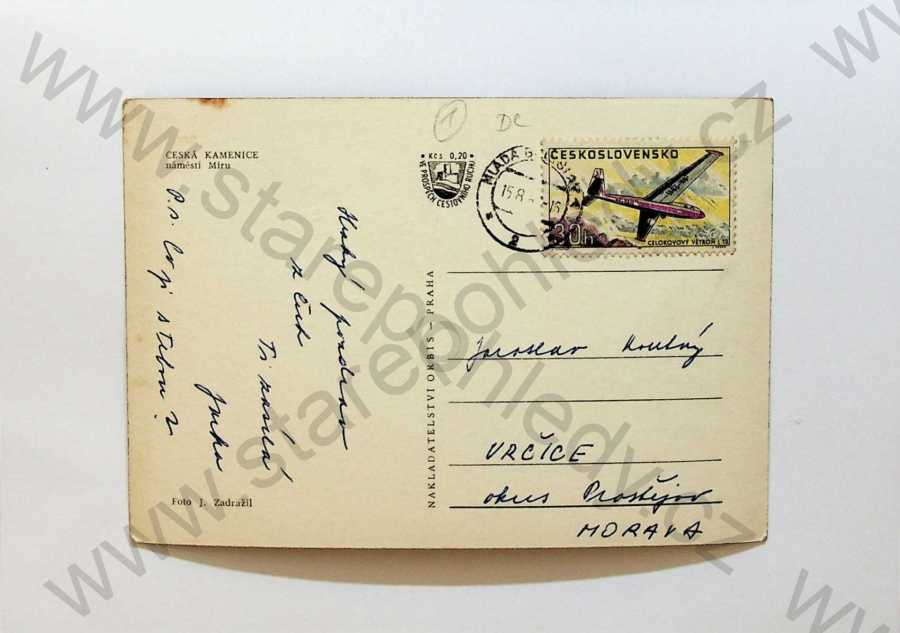 ČESKÁ KAMENICE
náměstí Míru
Kčs 0,20
VE PROSPĚCH CESTOVNÍHO RUCHU
1
DC
MLADÁ
15.8
ČESKOSLOVENSKO
30h
CELOKOVOVÝ VĚTROŇ L 13
pozdrav
Ti zasílá
Jarka
P.s. Co je s Tebou?
Foto J. Zadražil
NAKLADATELSTVÍ ORBIS – PRAHA
Jaroslav Koutný
VRČICE
okres Prostějov
MORAVA
www.starepohledy.cz
www.starepohledy.cz